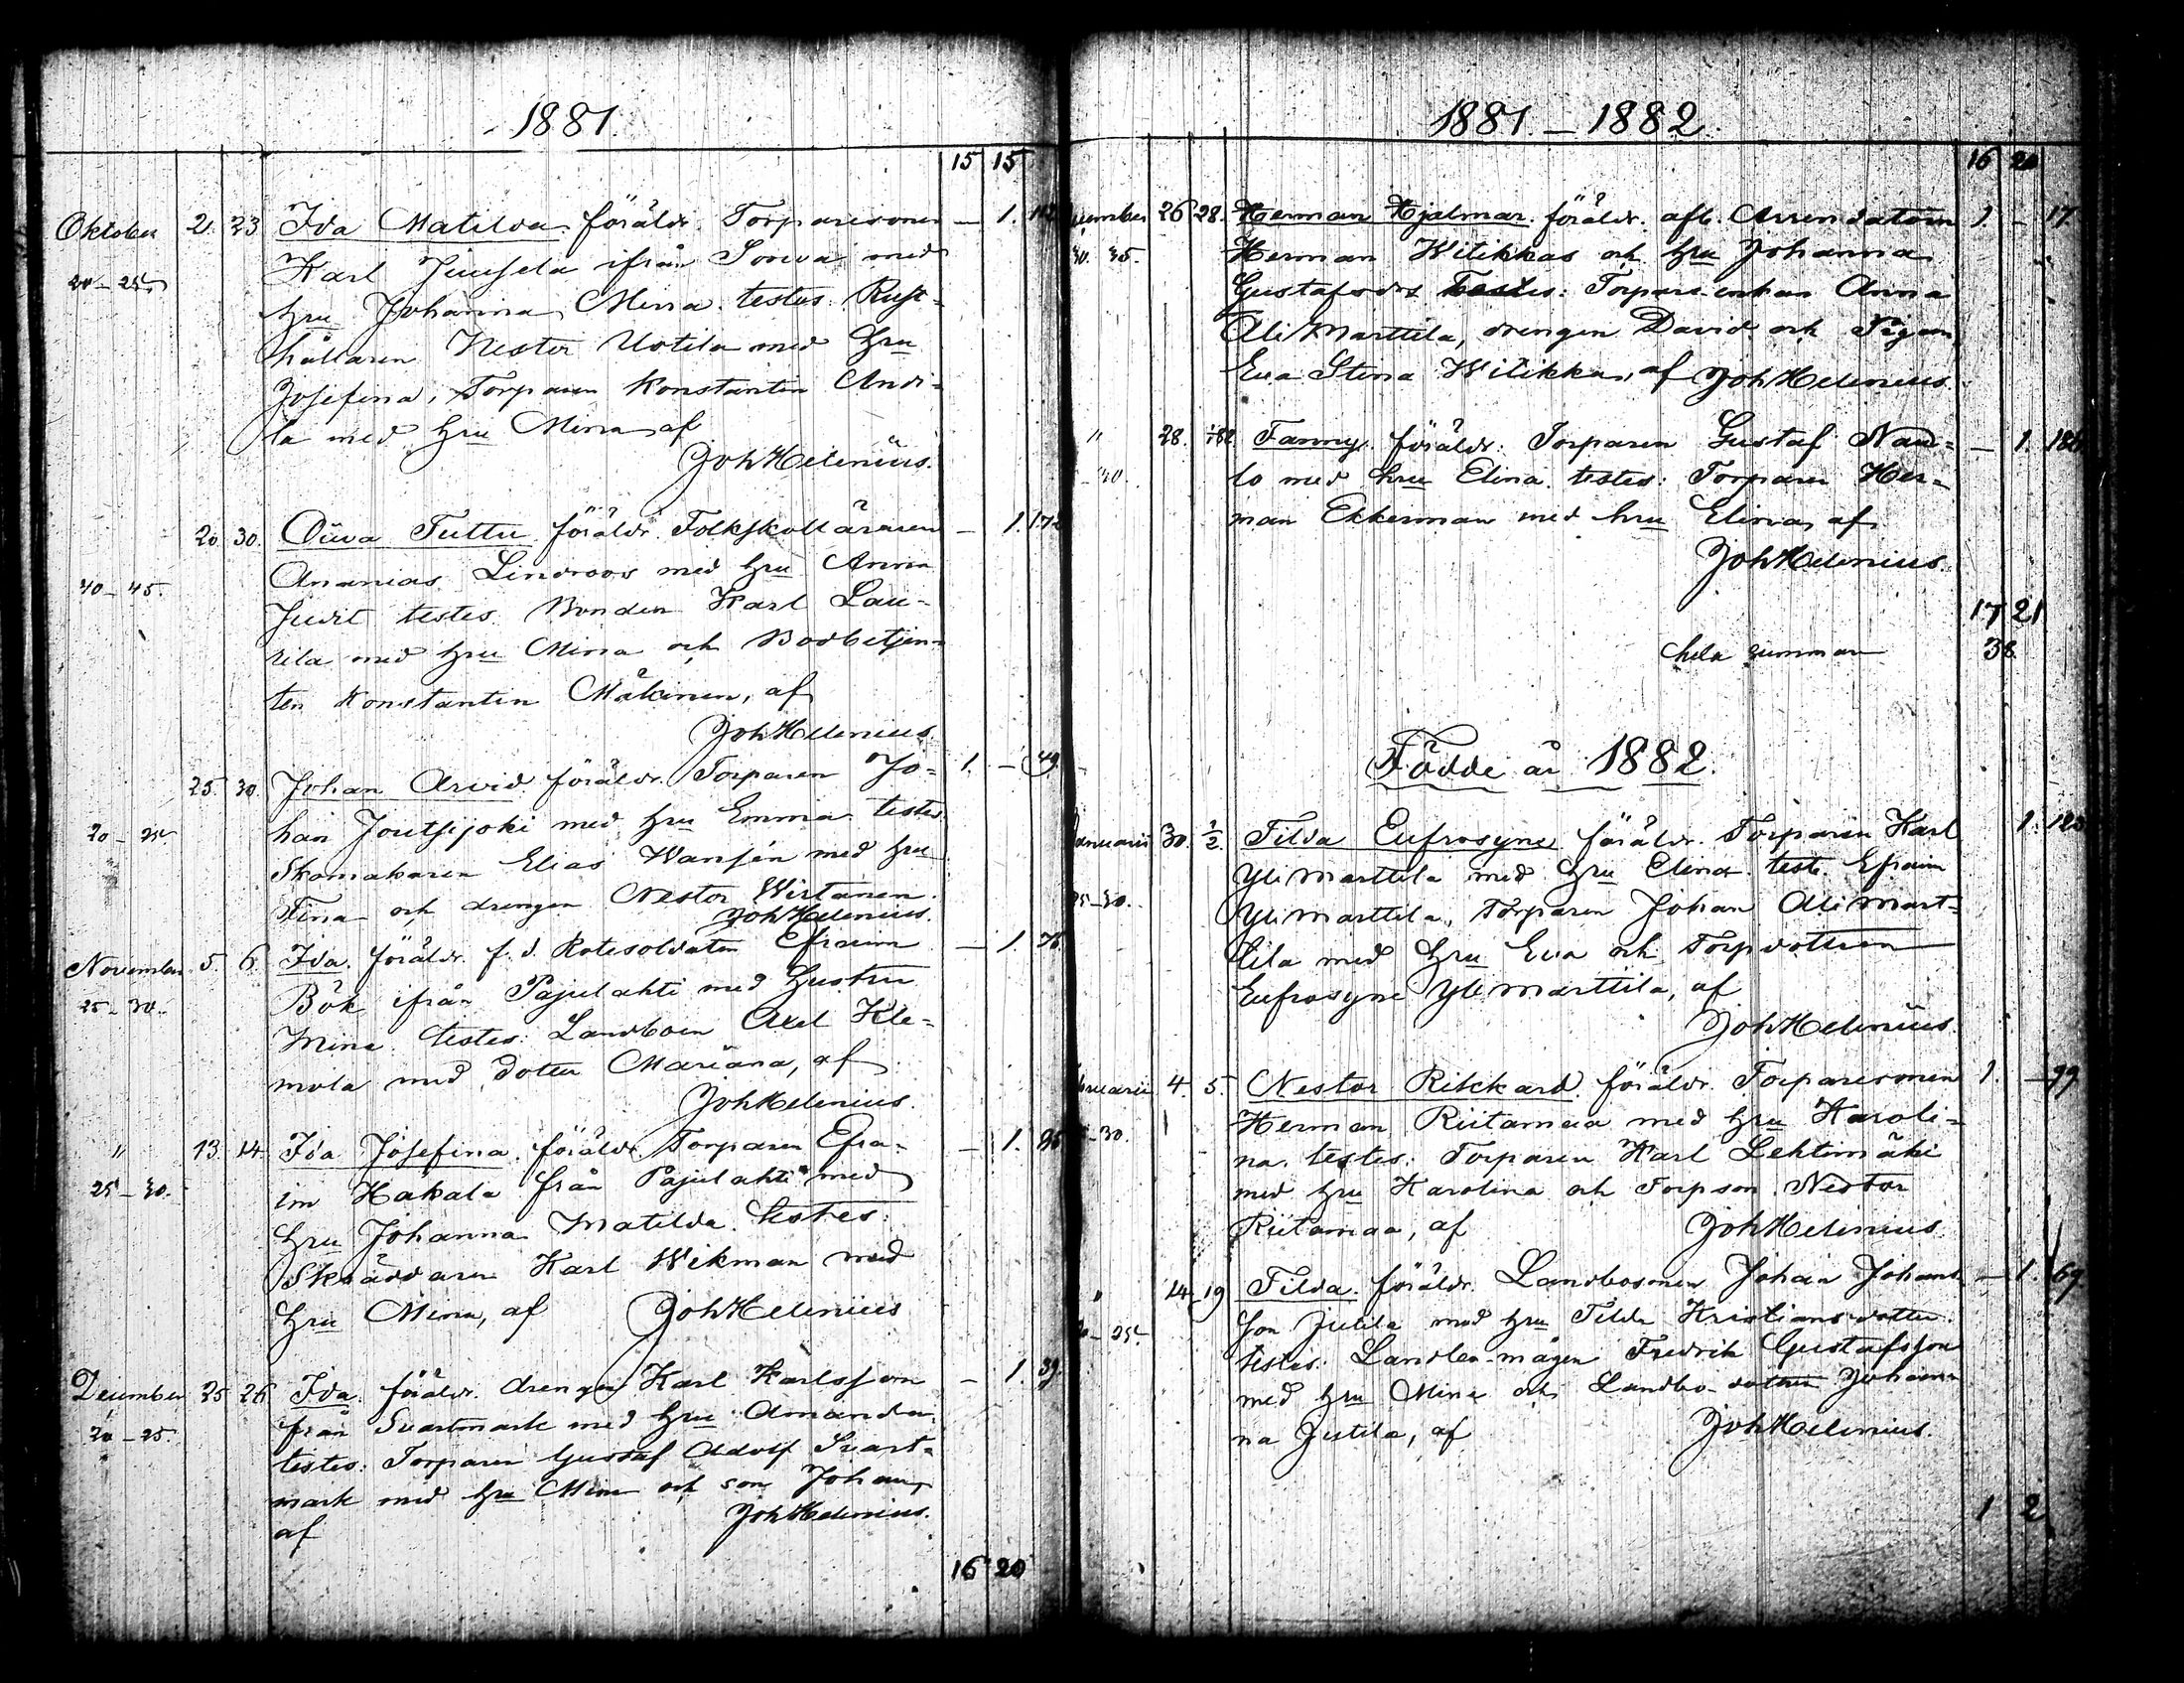 1881.
15 15
Oktober 21. 23. Ida Matilda. föräldr. Torparesonen — 1.
20–25. Karl Juusela ifrån Sorva med
hru Johanna Mina. testes: Rust-
hållaren Nestor Uotila med hru
Josefina, Torparen Konstantin Andi-
la med hru Mina, af
Joh Helenius.
20. 30. Oüva Tuttu. föräldr. Folkskolläraren — 1. 172
40–45. Ananias Lindroos med hru Anna
Judit testes. Bonden Karl Lau-
rila med hru Mina och Bodbetjen-
ten Konstantin Mäkinen, af
Joh Helenius.
25. 30. Johan Arvid. föräldr. Torparen Jo- 1. — 49.
20–25. han Joutsijoki med hru Emma testes
Skomakaren Elias Wansén med hru
Fina och drengen Nestor Wirtanen.
Joh Helenius.
November 5. 6. Ida. föräldr. f. d. Rotesoldaten Efraim — 1. 76
25–30. Bök ifrån Pajulahti med hustru
Mina. testes: Landboen Axel Kle-
mola med dotter Mariana, af
Joh Helenius.
" 13. 14. Ida Josefina. föräldr. Torparen Efra- — 1.
25–30. im Hakala från Pajulahti med
hru Johanna Matilda. testes:
Skräddaren Karl Wikman med
hru Mina, af Joh Helenius
December 25 26 Ida. föräldr. drengen Karl Karlsson — 1. 39.
20–25. från Svartmark med hru Amanda.
testes: Torparen Gustaf Adolf Svart-
mark med hru Mina och son Johan,
af Joh Helenius.
16 20
1881.–1882.
16 20
cember 26 28. Herman Hjalmar. föräldr. afl. Arrendatorn 1. – 17.
30. 35. Herman Witikkas och hru Johanna
Gustafsdr. Testes: Torpare-enkan Anna
Ali Marttila, drengen David och Pigan
Eva Stina Witikka, af Joh Helenius.
" 28. 1/1 82 Fanny. föräldr: Torparen Gustaf Nau- — 1.
–40. lo med hru Elina. testes: Torparen Her-
man Ekkerman med hru Elina, af
Joh Helenius.
17 21
hela summan 38.
Födde år 1882.
Januarii 30. 1/2. Tilda Eufrosyne föräldr. Torparen Karl 1.
25–30. Yli Marttila med hru Elina. teste. Efraim
Yli Marttila, Torparen Johan Ali Mart-
tila med hru Eva och Torpdottern
Eufrosyne Yli Marttila, af
Joh Helenius.
bruarii 4. 5. Nestor Rikkard. föräldr. Torparesonen 1. — 99
–30. Herman Riitamaa med hru Karoli-
na. testes: Torparen Karl Lehtimäki
med hru Karolina och Torpson Nestor
Riitamaa, af Joh Helenius.
" 14–19 Tilda. föräldr. Landbosonen Johan Johans- — 1. 69.
20–25. son Jutila med hru Tilda Kristiansdotter.
testes: Landbo-mågen Fredrik Gustafsson
med hru Mina och Landbo-dotter Johan-
na Jutila, af Joh Helenius.
1 2